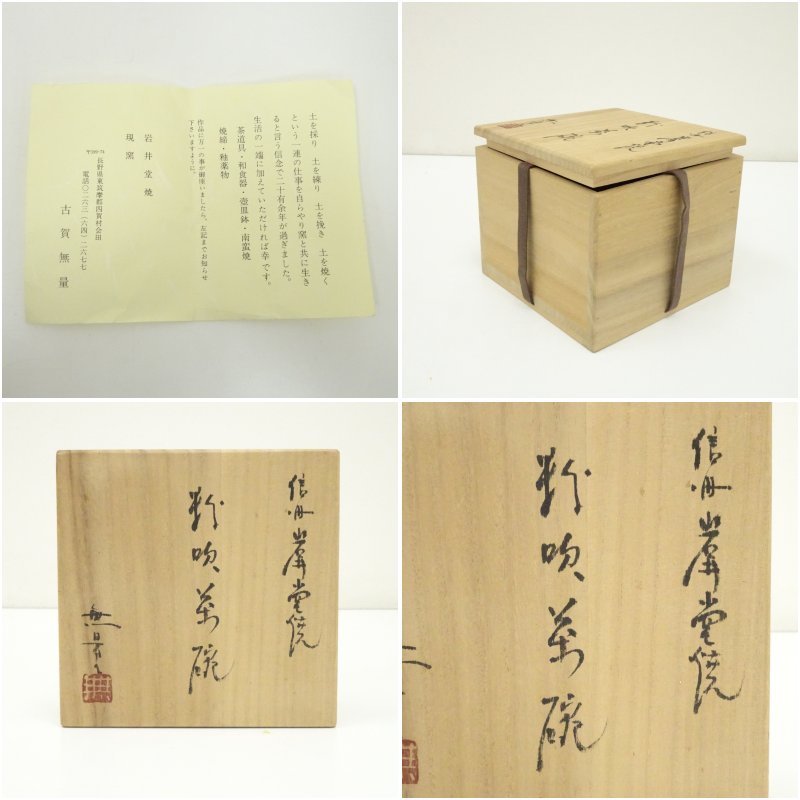 土を採り　土を練り　土を挽き　土を焼く
という一連の仕事を自らやり窯と共に生き
ると言う信念で二十有余年が過ぎました。
生活の一端に加えていただければ幸です。
茶道具・和食器・壺皿鉢・南蛮焼
焼締・釉薬物
作品に万一の事が御座いましたら、左記までお知らせ
下さいますように。
岩井堂焼
現窯
〒399-74
長野県東筑摩郡四賀村会田
電話〇二六三(六四)二六七七
古賀無量
粉吹茶碗
無量
信州
堂焼
粉吹茶碗